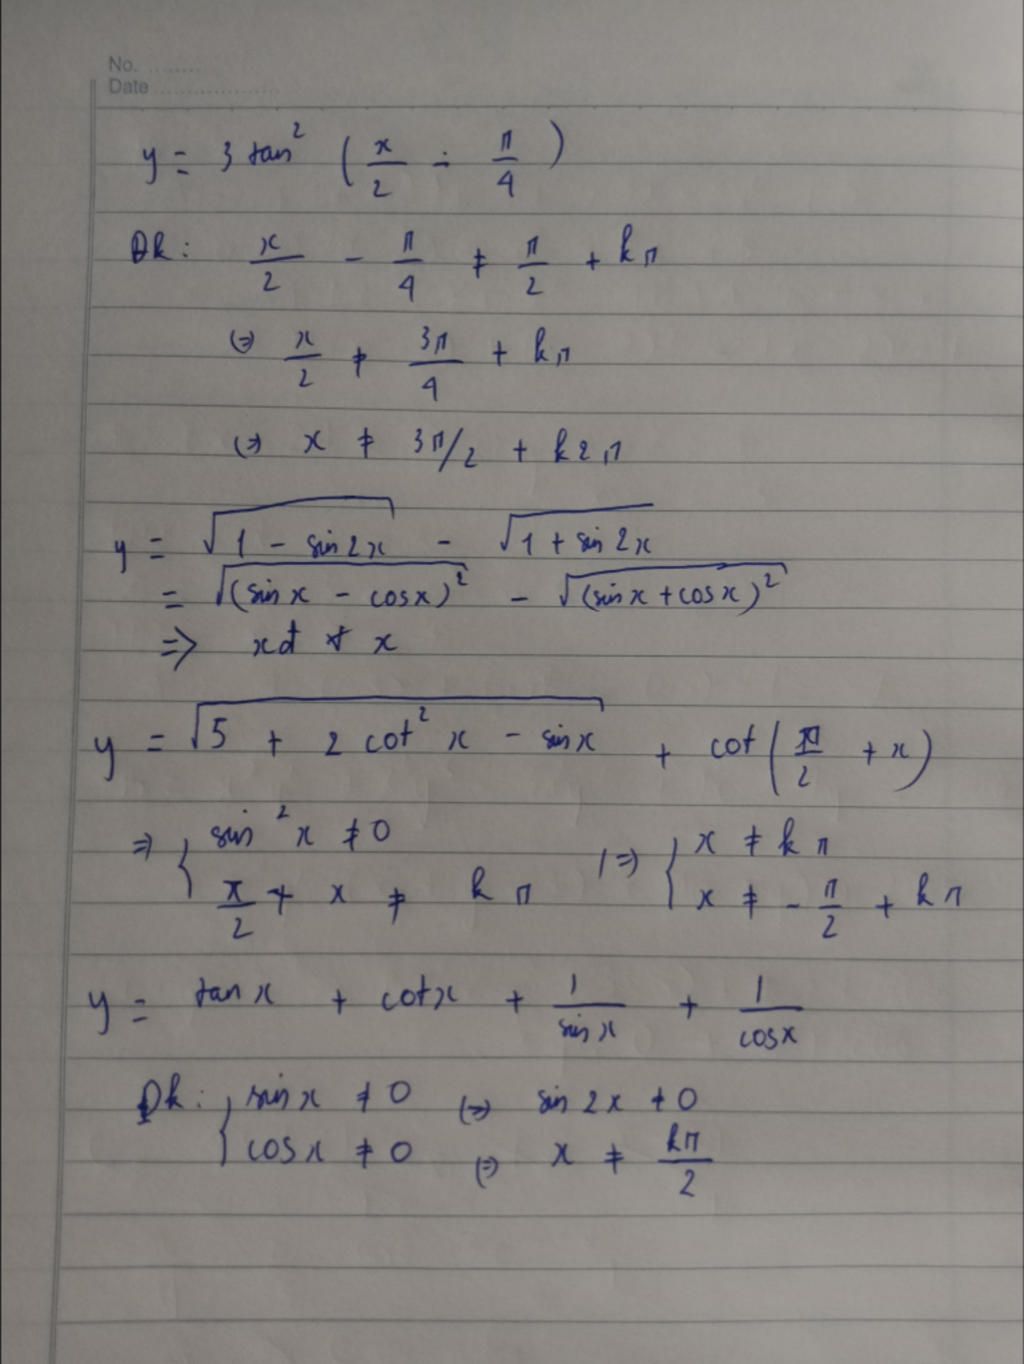 No. ........
Date ..................
y = 3 tan² ( x/2 - π/4 )
Đk: x/2 - π/4 ≠ π/2 + kπ
(=) x/2 ≠ 3π/4 + kπ
(=) x ≠ 3π/2 + k2π
y = √(1 - sin2x) - √(1 + sin 2x)
= √((sinx - cosx)²) - √((sinx + cosx)²)
=> xđ ∀ x
y = √(5 + 2 cot² x - sinx) + cot( π/2 + x )
=> { sin²x ≠ 0 (=> { x ≠ kπ
π/2 + x ≠ kπ x ≠ - π/2 + kπ
y = tanx + cotx + 1/sinx + 1/cosx
Đk: { sinx ≠ 0 (=) sin 2x ≠ 0
cosx ≠ 0 (=) x ≠ kπ/2